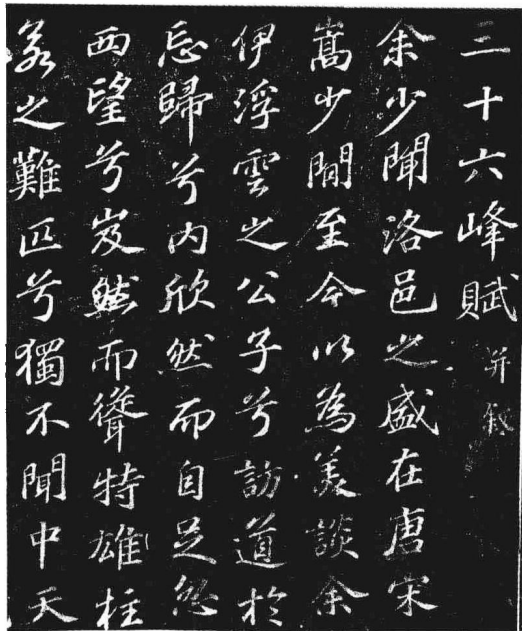 三十六峰賦并敘
余少聞洛邑之盛在唐宋
嵩少間至今以為美談余
伊浮雲之公子兮訪道於
忘歸兮内欣然而自足忽
西望兮岌然而聳特雄柱
之難匹兮獨不聞中天